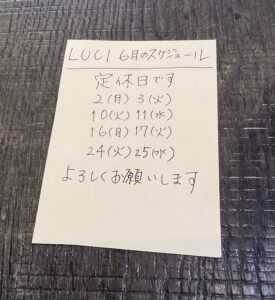 LUCI 6月のスケジュール
定休日です
2(月) 3(火)
10(火) 11(水)
16(月) 17(火)
24(火) 25(水)
よろしくお願いします